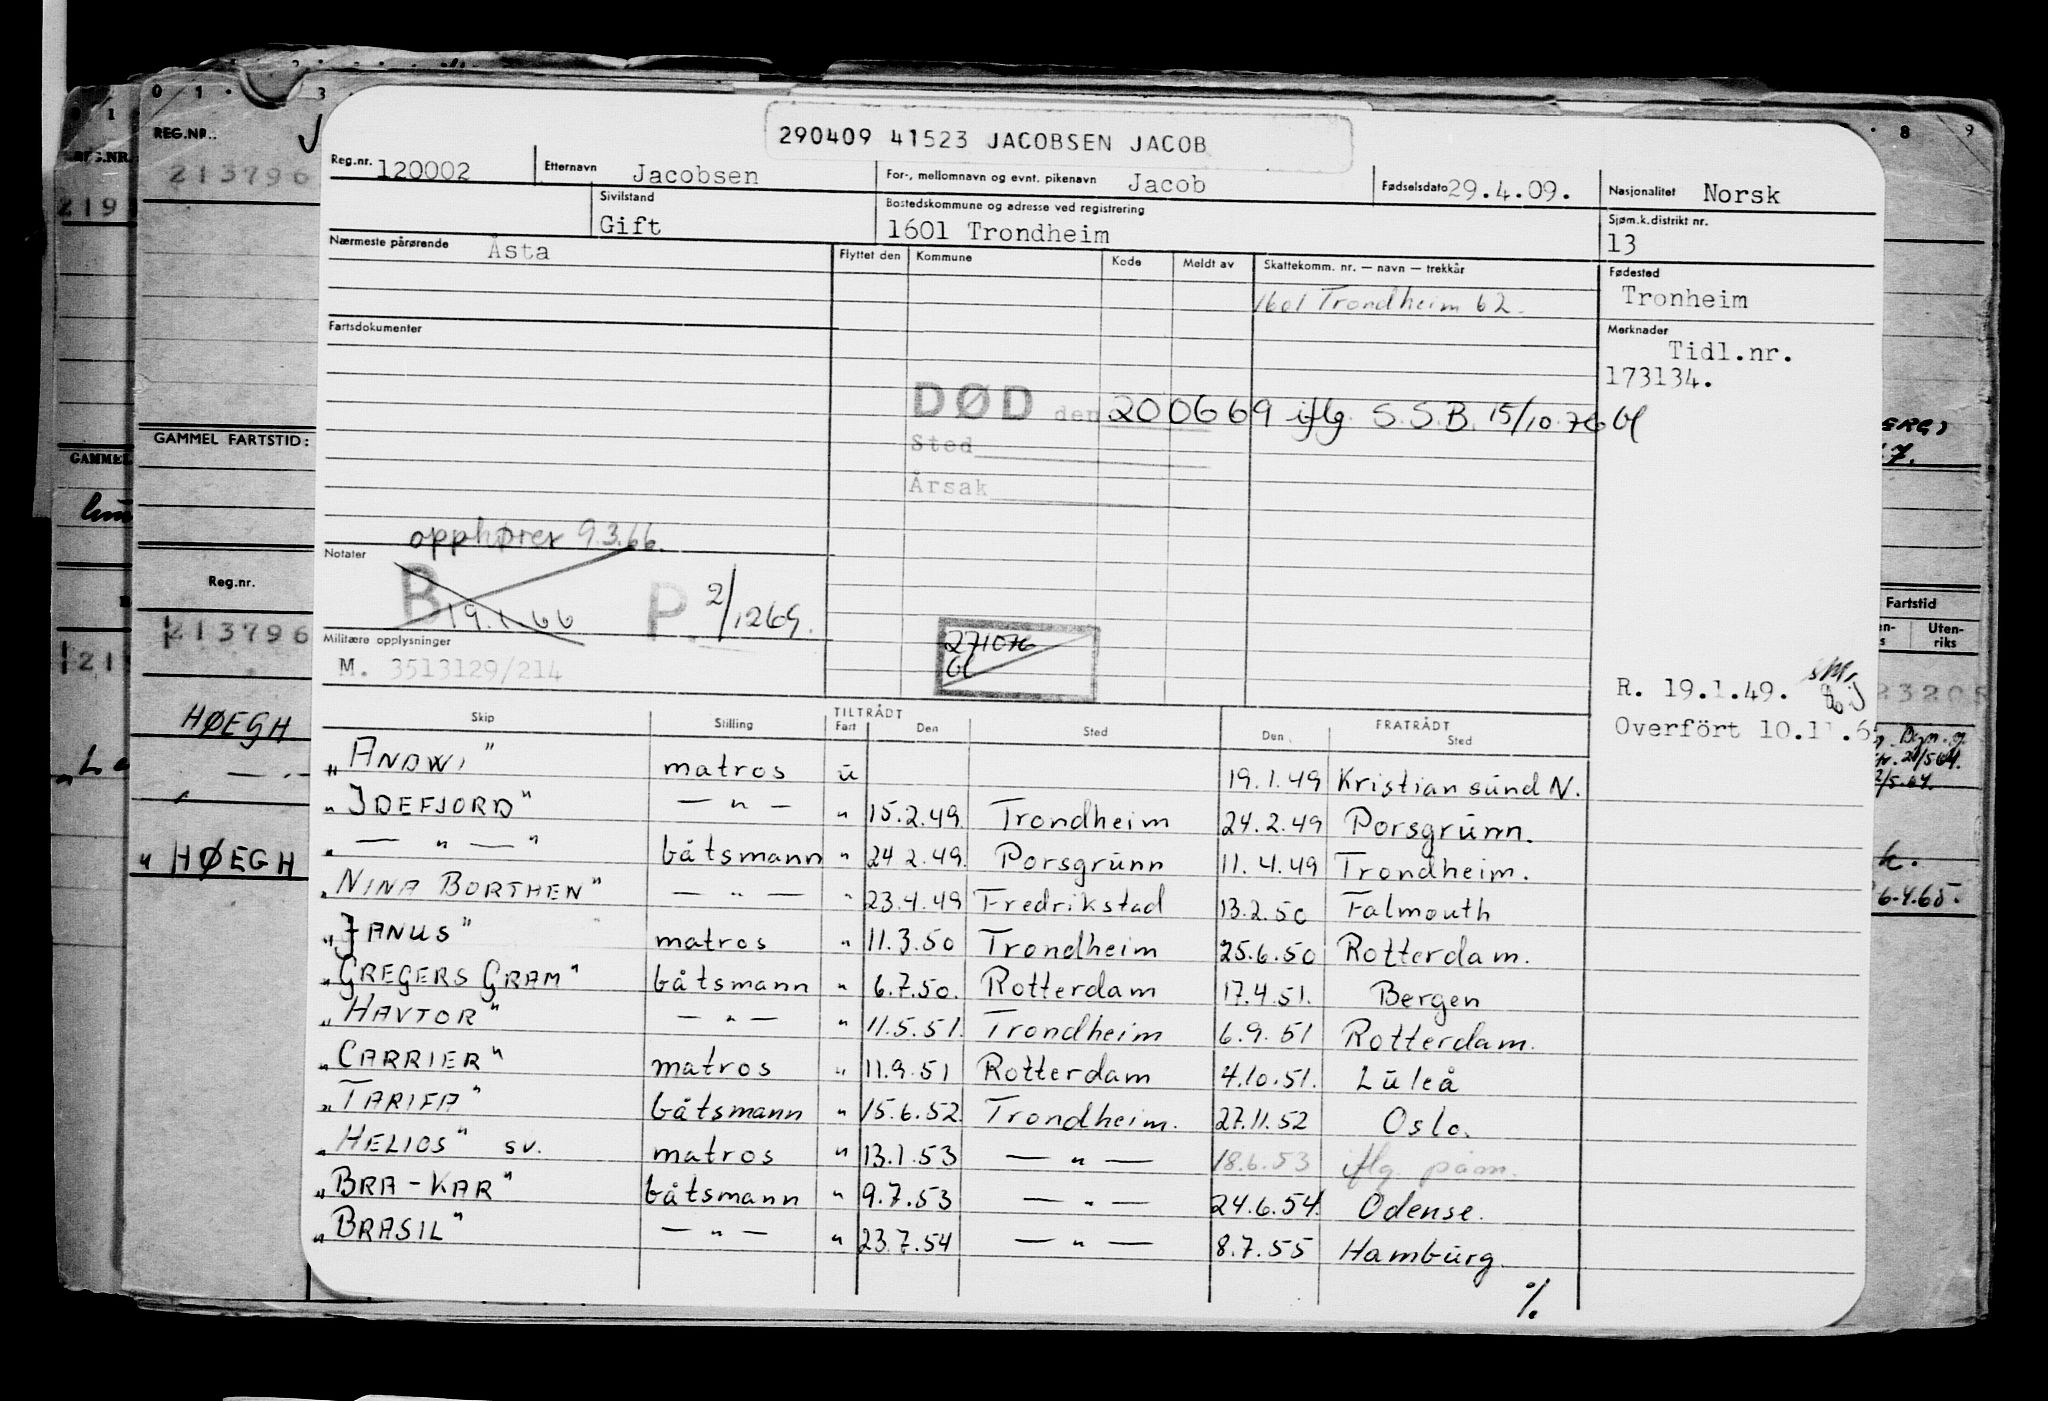 290409 41523 JACOBSEN JACOB
Reg.nr. 120002 Etternavn Jacobsen For-, mellomnavn og evnt. pikenavn Jacob Fødselsdato 29.4.09. Nasjonalitet Norsk
Sivilstand Gift Bostedskommune og adresse ved registrering 1601 Trondheim Sjøm.k.distrikt nr. 13
Nærmeste pårørende Åsta Flyttet den Kommune Kode Meldt av Skattekomm. nr. — navn — trekkår Fødested Tronheim
1601 Trondheim 62.
Fartsdokumenter Merknader Tidl.nr.
173134.
DØD den 200669 iflg. S.S.B. 15/10.76 Gl
Sted
Årsak
opphører 9.3.66.
Notater
B 19.1.66 P 2/1269.
271076
Gl
Militære opplysninger
M. 3513129/214
R. 19.1.49.
Overfört 10.11.6
Skip Stilling TILTRÅDT Fart Den Sted FRATRÅDT Den Sted
"ANDWI" matros u 19.1.49 Kristiansund N.
"IDEFJORD" — " — " 15.2.49. Trondheim 24.2.49 Porsgrunn.
" — " — " båtsmann " 24.2.49. Porsgrunn 11.4.49 Trondheim.
"NINA BORTHEN" — " — " 23.4.49 Fredrikstad 13.2.50 Falmouth
"JANUS" matros " 11.3.50 Trondheim 25.6.50 Rotterdam.
"GREGERS GRAM" båtsmann " 6.7.50. Rotterdam 17.4.51. Bergen
"HAVTOR" — " — " 11.5.51. Trondheim 6.9.51 Rotterdam.
"CARRIER" matros " 11.9.51 Rotterdam 4.10.51. Luleå
"TARIFA" båtsmann " 15.6.52. Trondheim. 27.11.52 Oslo.
"HELIOS" sv. matros " 13.1.53 — " — 18.6.53 iflg. påm.
"BRA-KAR" båtsmann " 9.7.53 — " — 24.6.54. Odense.
"BRASIL" — " — " 23.7.54 — " — 8.7.55 Hamburg.
%
0 1 3
REG.NR.:
213796
GAMMEL FARTSTID:
Reg.nr.
213796
HØEGH
" HØEGH
1
REG.NR.
219
GAMMEL
21
8 9
7.
Fartstid
Uten-
riks
2320
21/564.
2/5.64.
k.
6.4.65.